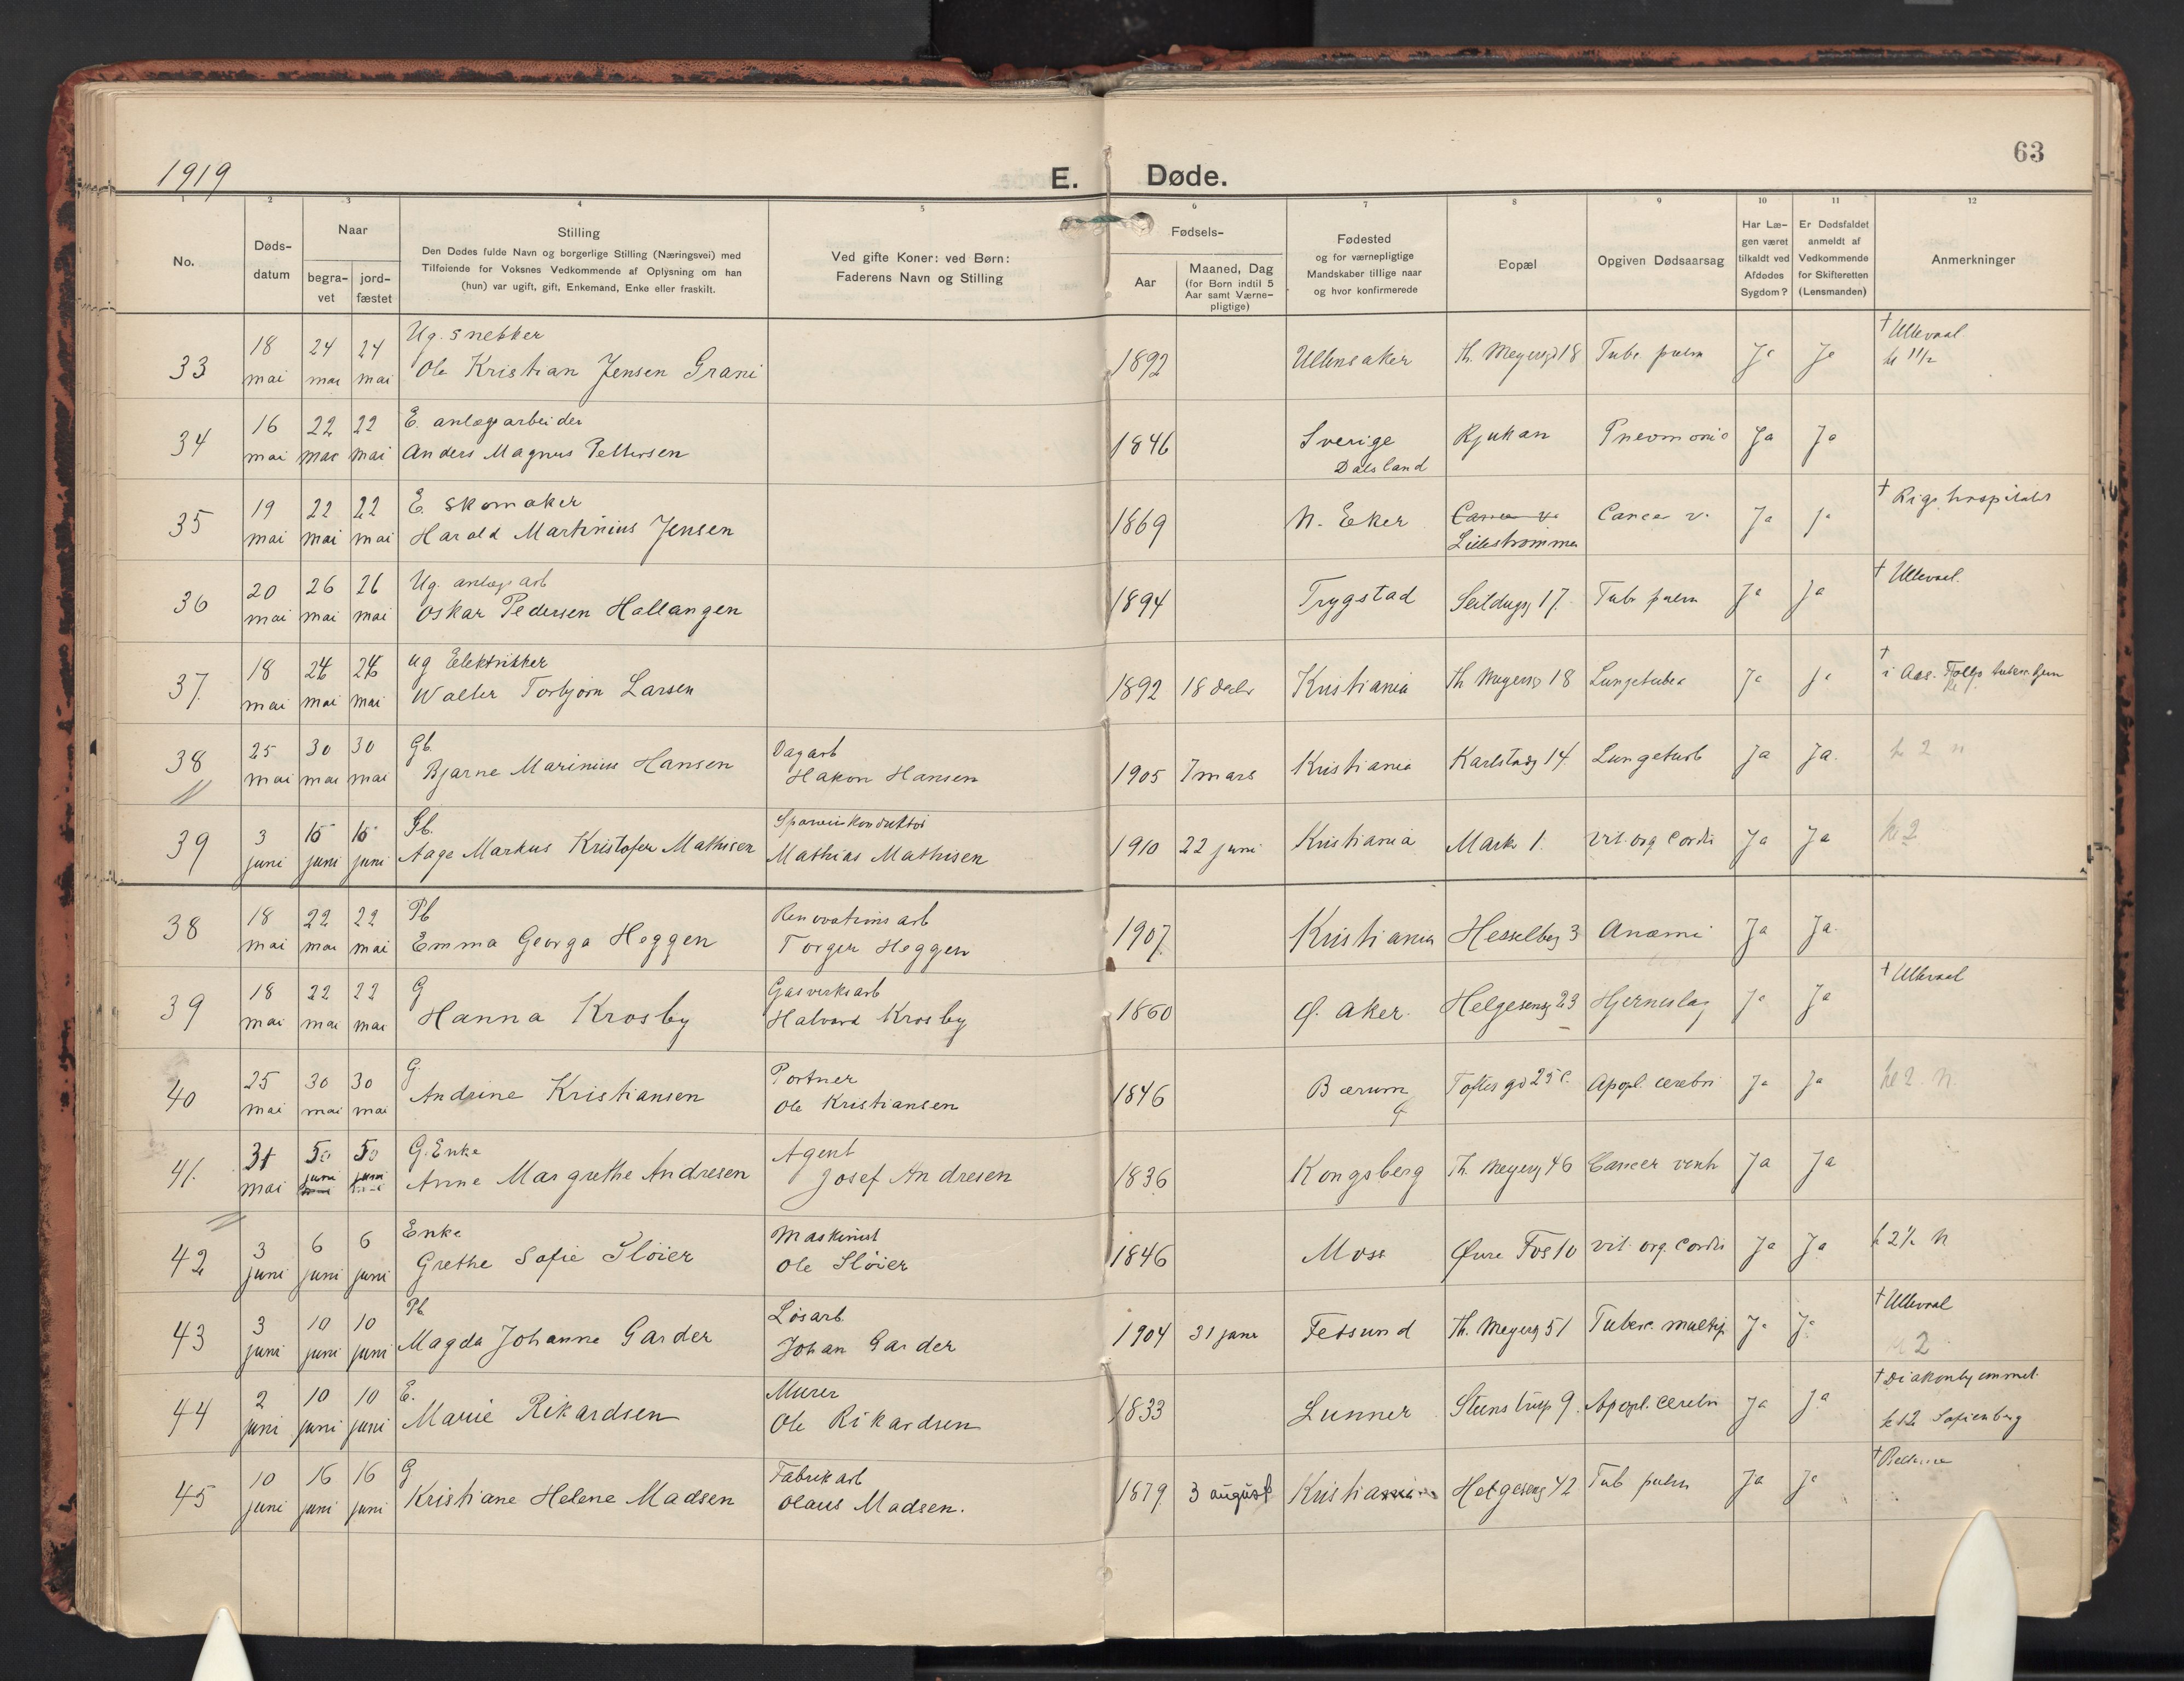 1919
E. Døde.
63
1 2 3 4 5 6 7 8 9 10 11 12
No.
Døds-
datum
Naar
begra-
vet
jord-
fæstet
Stilling
Den Dødes fulde Navn og borgerlige Stilling (Næringsvei) med
Tilføiende for Voksnes Vedkommende af Oplysning om han
(hun) var ugift, gift, Enkemand, Enke eller fraskilt.
Ved gifte Koner: ved Børn:
Faderens Navn og Stilling
Fødsels-
Aar
Maaned, Dag
(for Børn indtil 5
Aar samt Værne-
pligtige)
Fødested
og for værnepligtige
Mandskaber tillige naar
og hvor konfirmerede
Bopæl
Opgiven Dødsaarsag
Har Læ-
gen været
tilkaldt ved
Afdødes
Sygdom?
Er Dødsfaldet
anmeldt af
Vedkommende
for Skifteretten
(Lensmanden)
Anmerkninger
18 24 24 Ug. snekker † Ullevaal
33 mai mai mai Ole Kristian Jensen Grani 1892 Ullensaker Th. Meyersgd 18 Tube. pulm Ja Ja kl 11½
16 22 22 E. anlægsarbeider
34 mai mai mai Anders Magnus Pettersen 1846 Sverige Rjukan Pneomonie Ja Ja
Dalsland
19 22 22 E. Skomaker † Rigshospitalet
35 mai mai mai Harald Martinius Jensen 1869 N. Eker Cancer v. Cancer v. Ja Ja
Lillestrømmen
20 26 26 Ug. anlægsarb † Ullevaal.
36 mai mai mai Oskar Pedersen Hallangen 1894 Trygstad Seildugsg 17. Tub pulm Ja Ja
18 24 24 ug Elektrikker †
37 mai mai mai Walter Torbjørn Larsen 1892 18 decbr Kristiania Th Meyersg 18 Lungetuber Ja Ja i Aas. Follo tuberc. hjem
25 30 30 Gb. Dagarb
38 mai mai mai Bjarne Marinius Hansen Hakon Hansen 1905 7 mars Kristiania Karlstadg 14. Lungetub Ja Ja. kl 2 n
3 10 10 Gb. Sporveiskonduktør
39 juni juni juni Aage Markus Kristofer Mathisen Mathias Mathisen 1910 22 juni Kristiania Markv 1. vit. org cordis Ja Ja kl 2
18 22 22 Pb Renovations arb
38 mai mai mai Emma Georga Heggen Torger Heggen 1907. Kristiania Hesselbg 3 Anæmi Ja Ja.
18 22 22 G Gasverksarb † Ullevaal
39 mai mai mai Hanna Krosby Halvard Krosby 1860 Ø. Aker. Helgesensg 23 Hjerneslag Ja Ja
25 30 30 G Portner
40 mai mai mai Andrine Kristiansen Ole Kristiansen 1846 Bærum Toftes gd 25 c. Apopl. cerebri Ja Ja kl 2 n.
31 5 5 G. Enke Agent
41. mai juni juni Anne Margrethe Andresen Josef Andresen 1836 Kongsberg Th. Meyersg 46 Cancer ventr Ja Ja
3 6 6 Enke Maskinist
42 juni juni juni Grethe Sofie Sløier Ole Sløier 1846 Moss Øvre Fos 10 vit. org. cordis Ja Ja k 2½ n
3 10 10 Pb Løsarb † Ullevaal
43 juni juni juni Magda Johanne Garder Johan Garder 1904 31 janr Fetsund Th. Meyersg 51 Tuberc. multip Ja Ja kl 2
2 10 10 E. Murer † Diakonhjemmet.
44 juni juni juni Marie Rikardsen Ole Rikardsen 1833 Lunner Steenstrup 9. Apopl. cerebri Ja Ja kl 12 Sofienberg
10 16 16 G Fabrikarb
45 juni juni juni Kristiane Helene Madsen Olaus Madsen. 1879 3 august Kristiania Helgesensg 42 Tub pulm Ja Ja